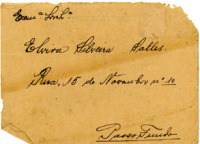 Exmª Srnhª
Elvira Silveira Salles.
Rua, 15 de Novembro nº 10
Passo Fundo